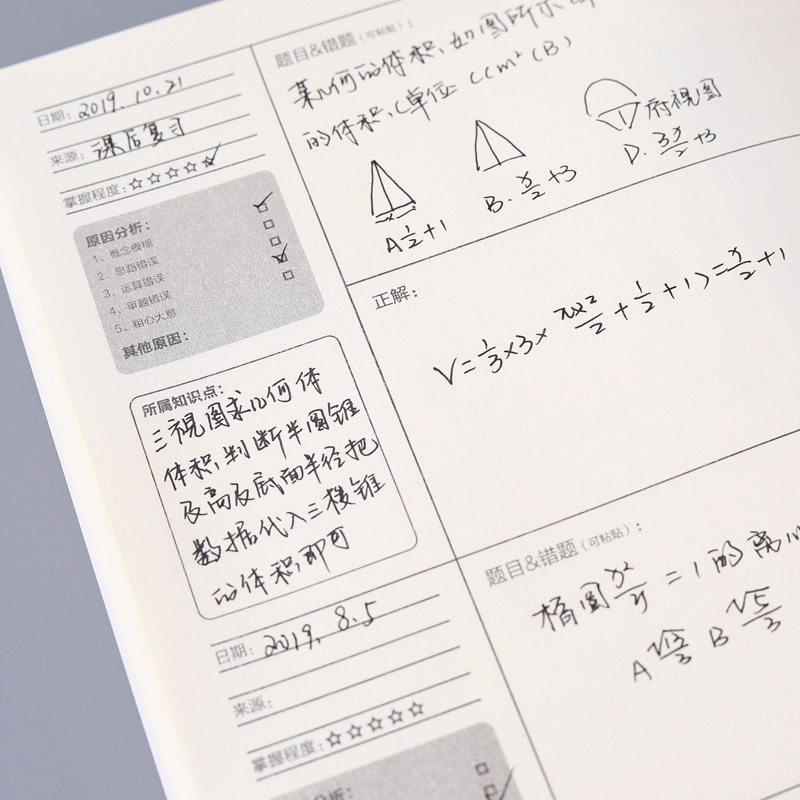 日期: 2019.10.21
来源: 课后复习
掌握程度: ☆☆☆☆☆
原因分析:
1、概念模糊
2、思路错误
3、运算错误
4、审题错误
5、粗心大意
其他原因:
所属知识点:
三视图求几何体
体积,判断半圆锥
及高及底面半径把
数据代入三棱锥
的体积即可
题目&错题(可粘贴):
某几何的体积,如图所示
的体积,(单位 cm²(B)
府视图
A 1/2+1
B. π/2+3
D. 3π/2+3
正解:
V=1/3×3×(π×²/2+1/2+1)=π/2+1
日期: 2019. 8.5
来源:
掌握程度: ☆☆☆☆☆
分析:
题目&错题(可粘贴):
椭圆 =1的离心
A √13/3 B √5/3